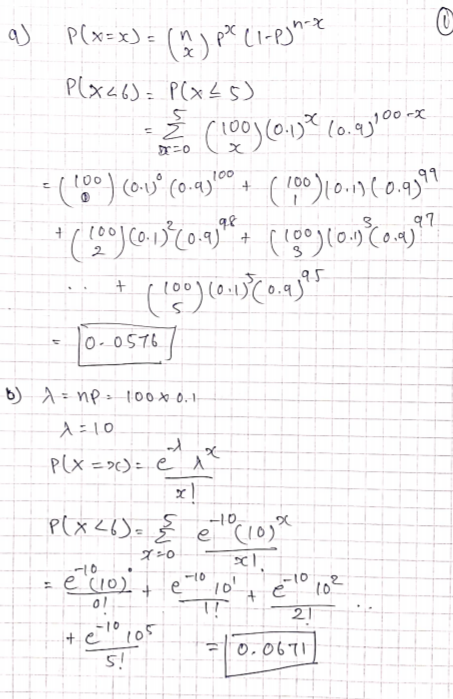 ①
a) P(X=x) = (n x) p^x (1-P)^{n-x}
P(X<6) = P(X≤5)
= Σ_{x=0}^{5} (100 x) (0.1)^x (0.9)^{100-x}
= (100 0) (0.1)^0 (0.9)^{100} + (100 1) (0.1) (0.9)^{99}
+ (100 2) (0.1)^2 (0.9)^{98} + (100 3) (0.1)^3 (0.9)^{97}
.. + (100 5) (0.1)^5 (0.9)^{95}
= 0.0576
b) λ = np = 100 × 0.1
λ = 10
P(X=x) = e^{-λ} λ^x / x!
P(X<6) = Σ_{x=0}^{5} e^{-10} (10)^x / x!
= e^{-10} (10)^0 / 0! + e^{-10} 10^1 / 1! + e^{-10} 10^2 / 2! ..
+ e^{-10} 10^5 / 5! = 0.0671